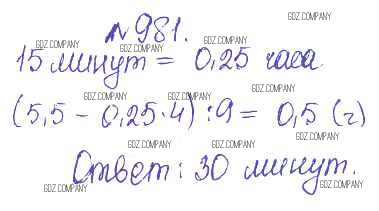 GDZ.COMPANY
№981.
GDZ.COMPANY GDZ.COMPANY GDZ.COMPANY
15 минут = 0,25 часа
GDZ.COMPANY GDZ.COMPANY GDZ.COMPANY
(5,5 - 0,25·4) : 9 = 0,5 (ч)
GDZ.COMPANY GDZ.COMPANY GDZ.COMPANY
Ответ: 30 минут.
GDZ.COMPANY GDZ.COMPANY